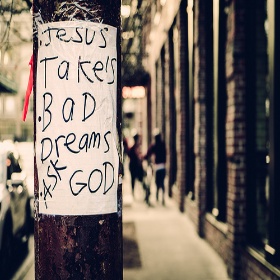 ·Jesus
Take's
·Bad
Dreams
·ASK
GOD